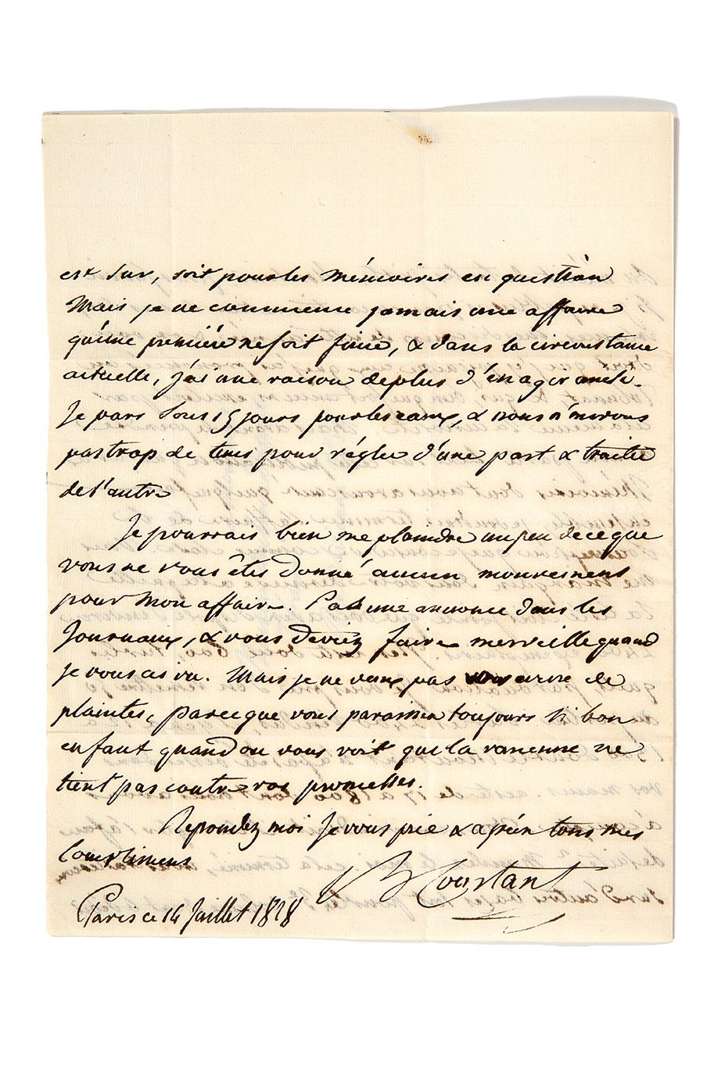 est sur, soit pour les mémoires en question
Mais je ne commence jamais une affaire
qu'une première ne soit finie, & dans la circonstance
actuelle, j'ai une raison de plus d'en agir ainsi.
Je pars sous 15 jours pour les eaux, & nous n'avons
pas trop de tems pour régler d'une part & traiter
de l'autre
Je pourrais bien me plaindre un peu de ce que
vous ne vous êtes donné aucun mouvement
pour mon affaire. Pas une annonce dans les
Journaux, & vous deviez faire merveille quand
je vous ai vu. Mais je ne veux pas vous écrire de
plaintes, parceque vous paraissez toujours si bon
enfant quand on vous voit que la rancune ne
tient pas contre vos promesses.
Repondez moi je vous prie & agréez tous mes
Complimens
B Constant
Paris ce 14 Juillet 1828